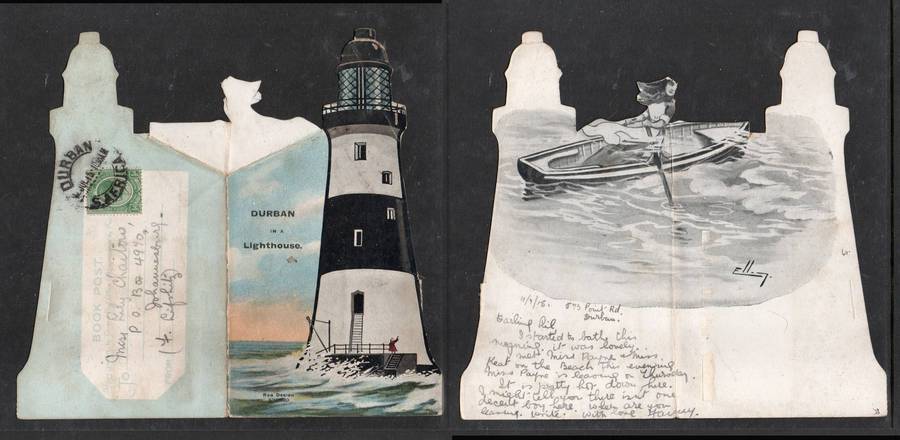 DURBAN
AMERICA
BOOK POST
To Miss Lily Charlow,
P O Box 4970,
Johannesburg
DURBAN
IN A
Lighthouse.
11/9/18. 573 Point Rd,
Durban.
Darling Lil
I started to bathe this
morning, it was lovely.
met Miss Payne & Miss
Keat on the Beach this evening
Miss Payne is leaving on Thursday.
It is pretty hot down here.
I might tell you there isn't one
decent boy here. When are you
leaving. Write. with love